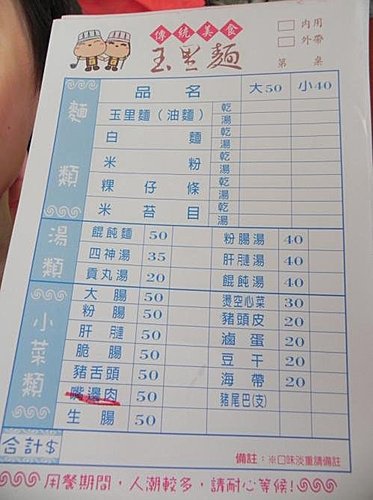 傳統美食
玉里麵
內用
外帶
第 桌
品名 大50 小40
麵類
玉里麵（油麵） 乾 湯
白麵 乾 湯
米粉 乾 湯
粿仔條 乾 湯
米苔目 乾 湯
湯類
餛飩麵 50 粉腸湯 40
四神湯 35 肝腱湯 40
貢丸湯 20 餛飩湯 40
小菜類
大腸 50 燙空心菜 30
粉腸 50 豬頭皮 20
肝腱 50 滷蛋 20
脆腸 50 豆干 20
豬舌頭 50 海帶 20
嘴邊肉 50 豬尾巴(支)
生腸 50
合計$
備註：※口味淡重請備註
用餐期間，人潮較多，請耐心等候！